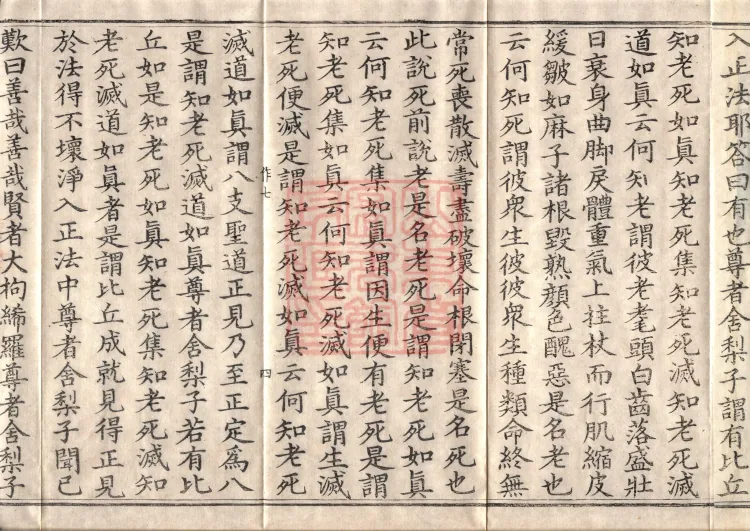 入正法耶答曰有也尊者舍梨子謂有比丘
知老死如眞知老死集知老死滅知老死滅
道如眞云何知老謂彼老耄頭白齒落盛壯
日衰身曲脚戾體重氣上拄杖而行肌縮皮
緩皺如麻子諸根毀熟顔色醜惡是名老也
云何知死謂彼衆生彼彼衆生種類命終無
常死喪散滅壽盡破壞命根閉塞是名死也
此說死前說老是名老死是謂知老死如眞
云何知老死集如眞謂因生便有老死是謂
知老死集如眞云何知老死滅如眞謂生滅
老死便滅是謂知老死滅如眞云何知老死
作七 四
滅道如眞謂八支聖道正見乃至正定爲八
是謂知老死滅道如眞尊者舍梨子若有比
丘如是知老死如眞知老死集知老死滅知
老死滅道如眞者是謂比丘成就見得正見
於法得不壞淨入正法中尊者舍梨子聞已
歎曰善哉善哉賢者大拘絺羅尊者舍梨子